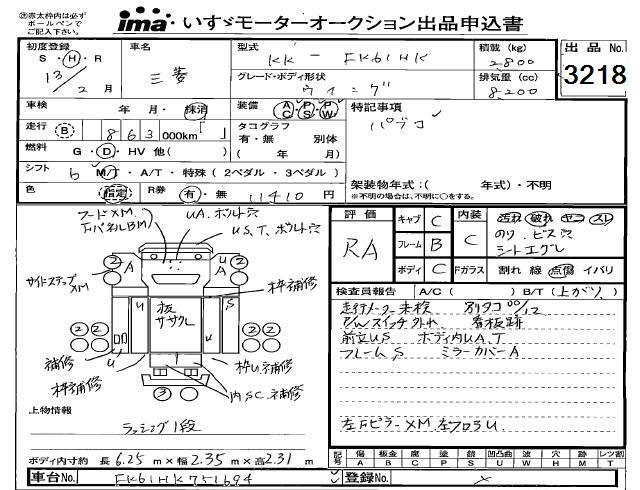 ㊟赤太枠内は必ず
ボールペンで
ご記入下さい。
ima いすゞモーターオークション出品申込書
初度登録
S・H・R
13/2月
車名
三菱
型式
KK-FK61HK
グレード・ボディ形状
ウイング
積載 (kg)
2800
排気量 (cc)
8200
出品 No.
3218
車検 年・月・抹消
装備 AC PS PW
特記事項
パブコ
走行 B 863 000km「 」
タコグラフ
有・無 別体
( 年 月)
燃料 G・D・HV 他( )
シフト 6 M/T・A/T・特殊 ( 2ペダル・3ペダル )
架装物年式:( 年式)・不明
※不明の場合は、不明に○をする。
色 指定 R券 有・無 11410 円
評価 RA
キャブ C
フレーム B
ボディ C
内装 C
汚れ 破れ ヤコ スレ
のり、ビス穴
シートエグレ
Fガラス 割れ 線 点傷 イバリ
検査員報告 A/C ( ) B/T (上がり)
走行メーター未検 別タコ00/12
P/Wスイッチ外れ 看板跡
前立US ボディ内UA.T
フレームS ミラーカバーA
左Fピラー XM 左フロアU
フードXM.
FパネルBM
UA.ボルト穴
US.T.ボルト穴
サイドステップ
XM
枠補修
板
ササクレ
補修
枠補修
枠U補修
内SC.補修
上物情報
ラッシング1段
ボディ内寸約 長 6.25 m×幅 2.35 m×高 2.31 m
記号 傷 A 板金 B 腐 C 塗 P 錆 S 凹凸曲 U 波 W 穴 H 跡 M 痛 T レツ割
車台No. FK61HK751694
登録No. ×